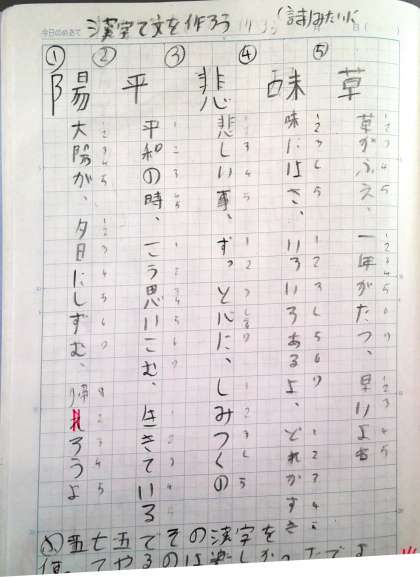 今日のめあて 漢字で文を作ろう (詩みたいに
① ② ③ ④ ⑤
陽 平 悲 味 草
草がふえ、一年がたつ、早いよね
味にはさ、いろいろあるよ、どれがすき
悲しい事、ずっと心に、しみつくの
平和の時、こう思いこむ、生きている
太陽が、夕日にしずむ、帰ろうよ
五七五でその漢字を